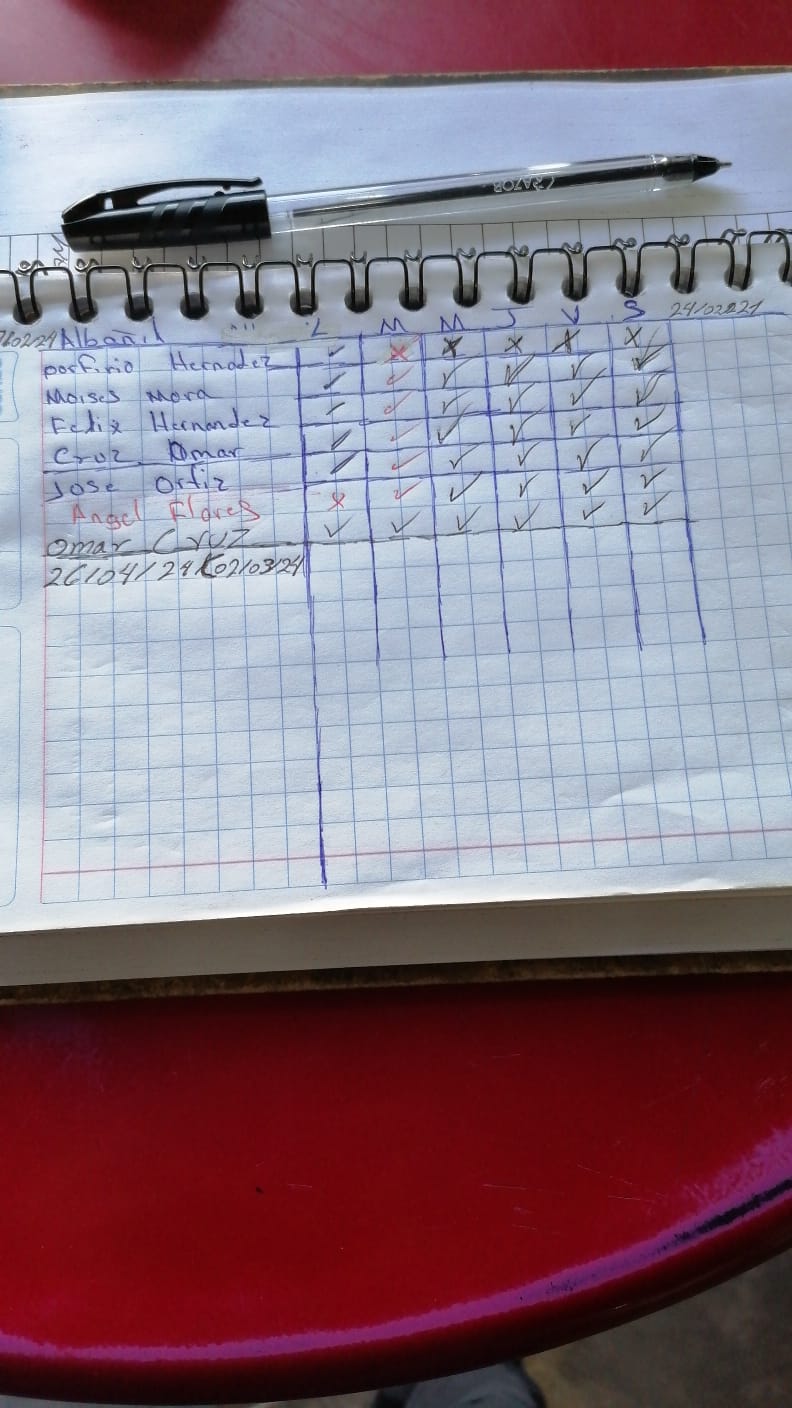 AZOR
Albañil L M M J V S 24/02/2024
posfirio Hernadez ✓ ✗ ✗ ✗ ✗ ✗
Moises Mora ✓ ✓ ✓ ✓ ✓ ✓
Felix Hernandez ✓ ✓ ✓ ✓ ✓ ✓
Cruz Omar ✓ ✓ ✓ ✓ ✓ ✓
Jose Ortiz ✓ ✓ ✓ ✓ ✓ ✓
Angel Flores ✗ ✓ ✓ ✓ ✓ ✓
Omar Cruz ✓ ✓ ✓ ✓ ✓ ✓
26/04/24 02/03/24